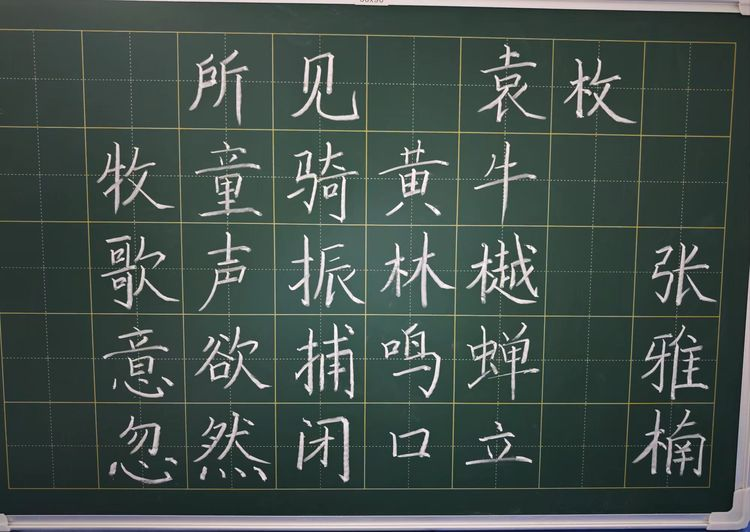 所见 袁枚
牧童骑黄牛
歌声振林樾
意欲捕鸣蝉
忽然闭口立
张雅楠